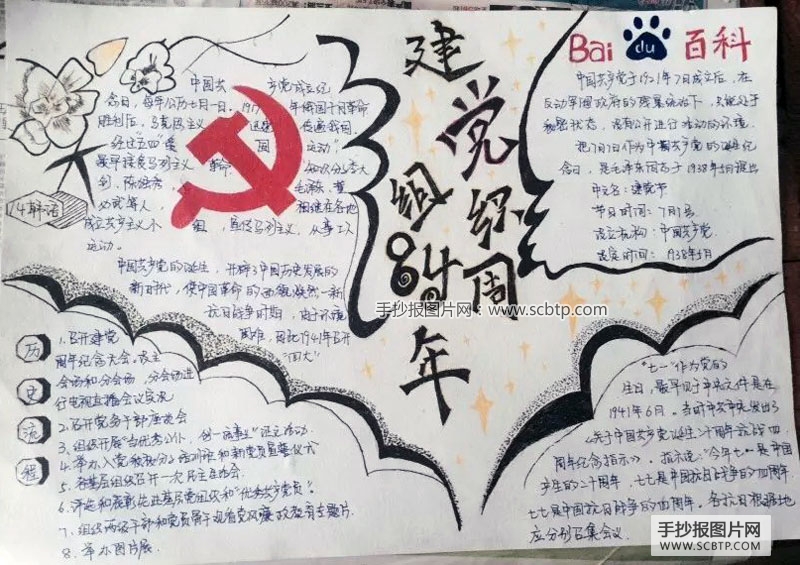 建党组织84周年
中国共 产党成立纪
念日,每年公历七月一日。1917 年俄国十月革命
胜利后,马克思主义 迅速 传遍我国,
经过五四爱 国 运动,
最早接受马列主义 的 知识分子李大
钊、陈独秀、 毛泽东、董
必武等人, 相继在各地
成立共产主义小 组,宣传马列主义,从事工人
运动。
中国共产党的诞生,开辟了中国历史发展的
新时代,使中国革命的面貌焕然一新
抗日战争时期,由于环境
困难,因此1941年召开
Bai du 百科
中国共产党于1921年7月成立后,在
反动军阀政府的残暴统治下,只能处于
秘密状态,没有公开进行活动的环境
把7月1日作为中国共产党的诞生纪
念日,是毛泽东同志于1938年5月提出
中文名:建党节
节日时间:7月1号
设立机构:中国共产党
设定时间:1938年5月
手抄报图片网:www.scbtp.com
历史流程
1.召开建党
周年纪念大会。设主
会场和分会场,分会场进
行电视直播会议实况
2.召开党务干部座谈会
3.组织开展"当优秀公仆,创一品事业"征文活动
4.举办入党积极分子培训班和新党员宣誓仪式
5.各基层组织召开一次民主生活会
6.评选和表彰先进基层党组织和"优秀共产党员"。
7.组织两级干部和党员骨干观看党风廉政教育专题片
8.举办图片展。
"七一"作为党的
生日,最早见于中央文件是在
1941年6月。当时中共中央发出了
《关于中国共产党诞生二十周年抗战四
周年纪念指示》。指示说:"今年七一是中国
产生的二十周年,七七是中国抗日战争的四周年
七七是中国抗日战争的四周年。各抗日根据地
应分别召集会议
手抄报图片网
WWW.SCBTP.COM